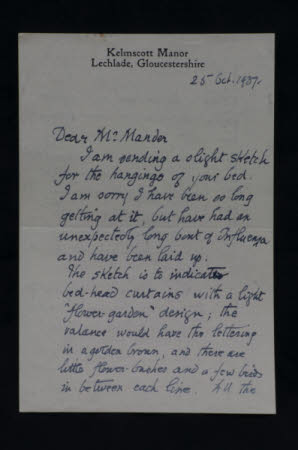 Kelmscott Manor
Lechlade, Gloucestershire
25 Oct. 1937.
Dear Mr Mander
I am sending a slight sketch
for the hangings of your bed.
I am sorry I have been so long
getting at it, but have had an
unexpectedly long bout of Influenza
and have been laid up.
The sketch is to indicate
bed-head curtains with a light
"flower-garden" design; the
valance would have the lettering
in a golden brown, and there are
little flower-bushes and a few birds
in between each line. All the